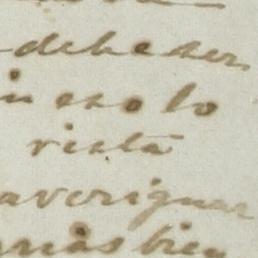 debe ser
in eso lo
vista
averiguar
más bien